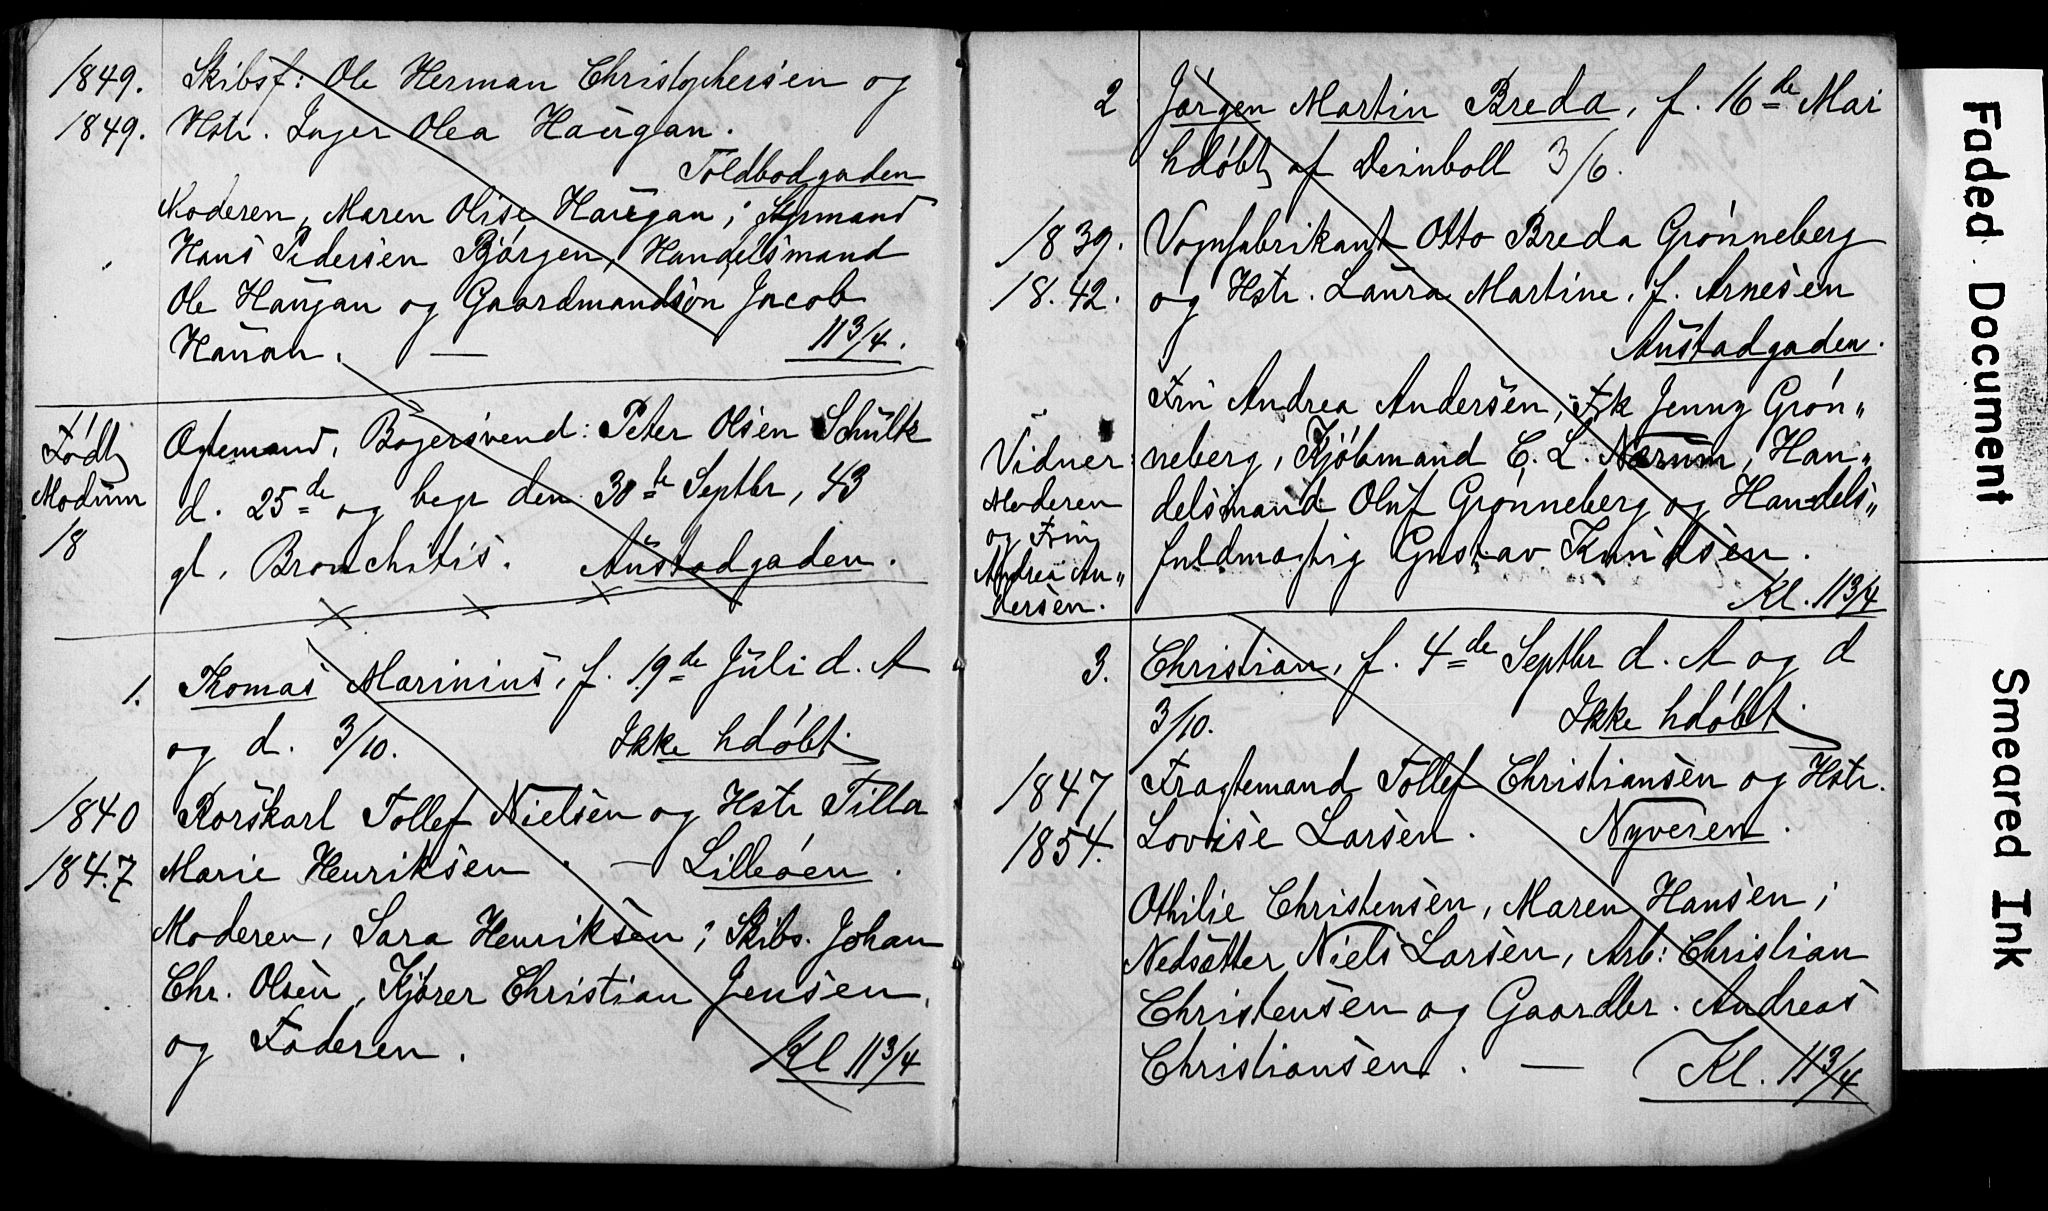 1849. Skibsf: Ole Herman Christophersen og
1849. Hstr. Inger Olea Haugan.
Toldbodgaden
Moderen, Maren Olise Haugan; Styrmand
Hans Pedersen Bjørgen, Handelsmand
Ole Haugan og Gaardmandsøn Jacob
Hauan. — 11 3/4.
Født, Modum 18
Ogtemand, Bagersvend: Peter Olsen Schultz
d. 25de og begr den 30te Septbr, 43
gl, Bronchitis. Austadgaden.
1. Thomas Marinius, f. 19de Juli d. A
og d. 3/10. Ikke hdøbt.
1840 Rorskarl Tollef Nielsen og Hstr Tilla
1847 Marie Henriksen — Lilleøen.
Moderen, Sara Henriksen; Skibs. Johan
Chr. Olsen, Kjører Christian Jensen,
og Faderen. Kl 11 3/4
2 Jørgen Martin Breda, f. 16de Mai
hdøbt af Deinboll 3/6.
1839. Vognfabrikant Otto Breda Grønneberg
18.42. og Hstr. Laura Martine, f. Arnesen
Austadgaden.
Fru Andrea Andersen, Frk Jenny Grøn„
neberg, Kjøbmand C. L. Nærum, Han„
delsmand Oluf Grønneberg og Handels„
fuldmægtig Gustav Knudsen.
Kl. 11 3/4
Vidner:
Moderen
og Fru
Andrea An„
dersen.
3. Christian, f. 4de Septbr d. A og d
3/10. Ikke hdøbt
1847 Fragtemand Tollef Christiansen og Hstr.
1854. Lovise Larsen. Nyveien.
Othilie Christensen, Maren Hansen;
Nedsætter Niels Larsen, Arb: Christian
Christensen og Gaardbr. Andreas
Christiansen. — Kl. 11 3/4
Faded Document
Smeared Ink